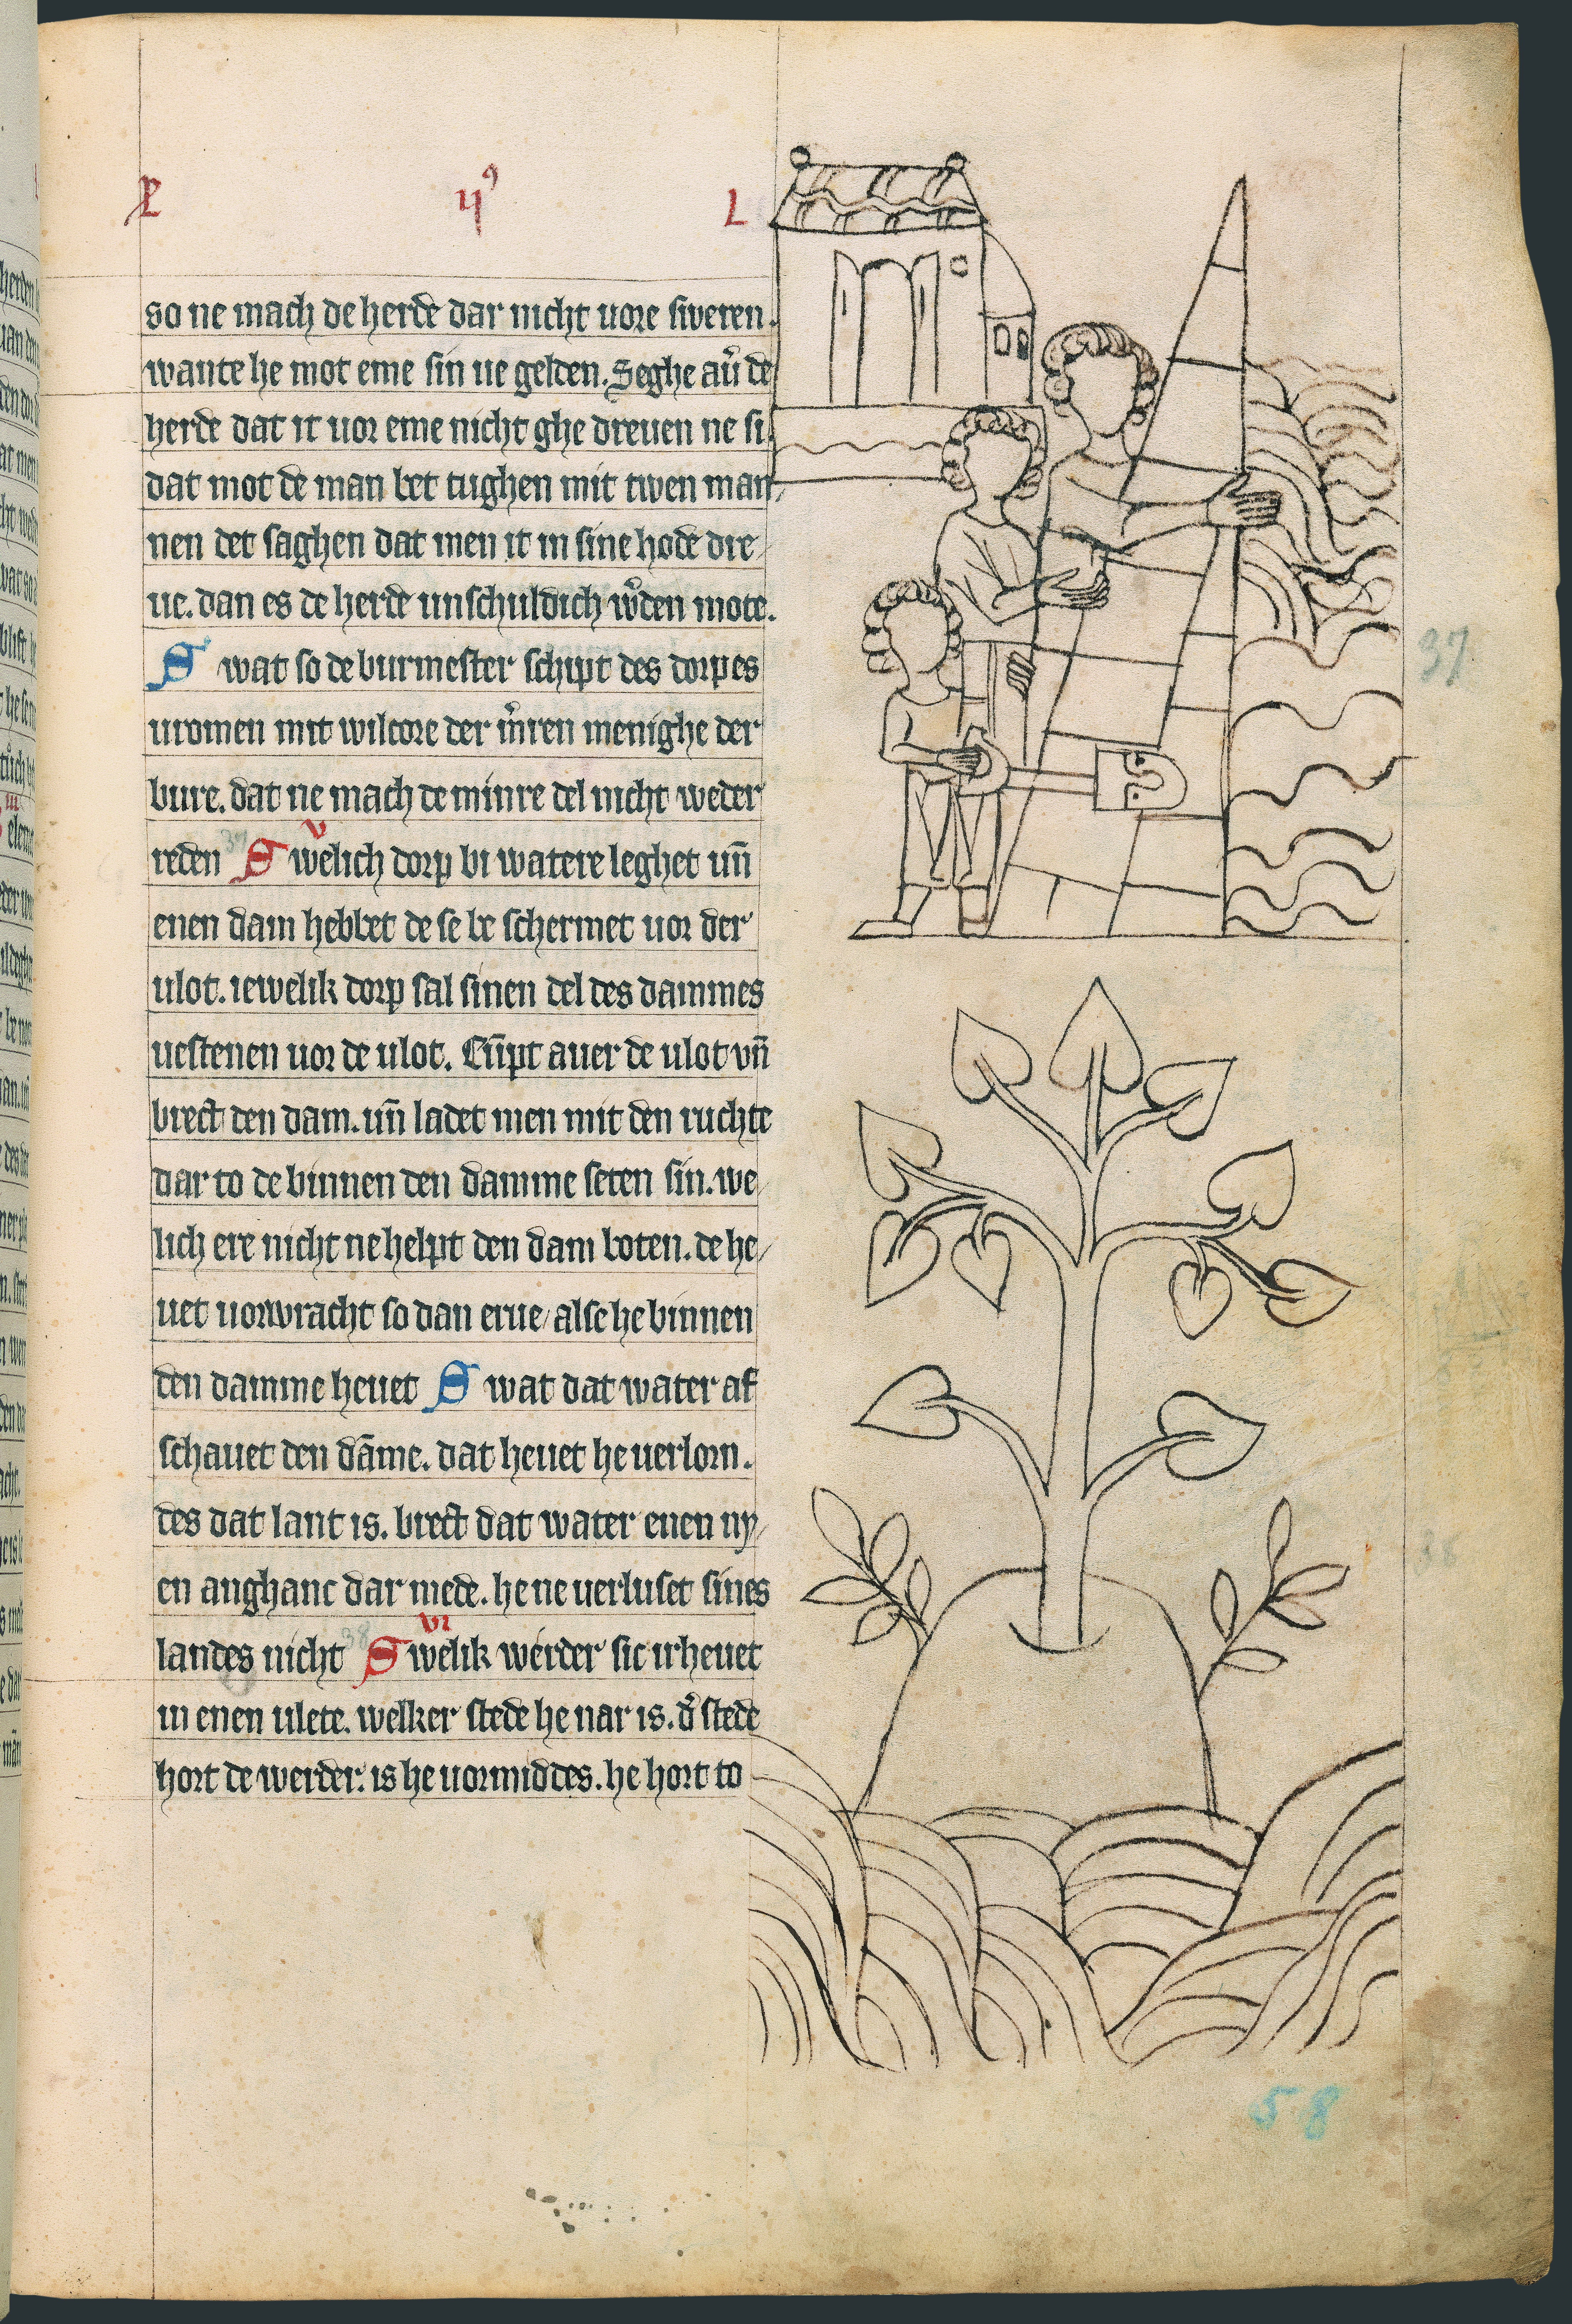 L
so ne mach de herde dar nicht uore sweren.
wante he mot eme sin ue gelden. Seghe au̕ de
herde dat it uor eme nicht ghe dreuen ne si.
dat mot de man bet tughen mit twen man
nen det saghen dat men it in sine hode dre
ue. dan es de herde unschuldich w̕den mote.
S wat so de burmester schipt des dorpes
uromen mit wilcore der m̕ren menighe der
bure. dat ne mach de minre del nicht weder
v
reden 37 S welich dorp bi watere leghet un̄
enen dam hebbet de se be schermet uor der
ulot. iewelik dorp sal sinen del des dammes
uestenen uor de ulot. Cūpt auer de ulot vn̄
brect den dam. un̄ ladet men mit den ruchte
dar to de binnen den damme seten sin. we
lich ere nicht ne helpt den dam boten. de he
uet uorwracht so dan erue alse he binnen
den damme heuet S wat dat water af
schauet den dāme. dat heuet he uerlorn.
des dat lant is. brect dat water enen ny
en anghanc dar mede. he ne uerluset sines
vi
landes nicht 38 S welik werder sic irheuet
in enen ulete. welker stede he nar is. d̕ stede
hort de werder. is he uormiddes. he hort to
37
38
58